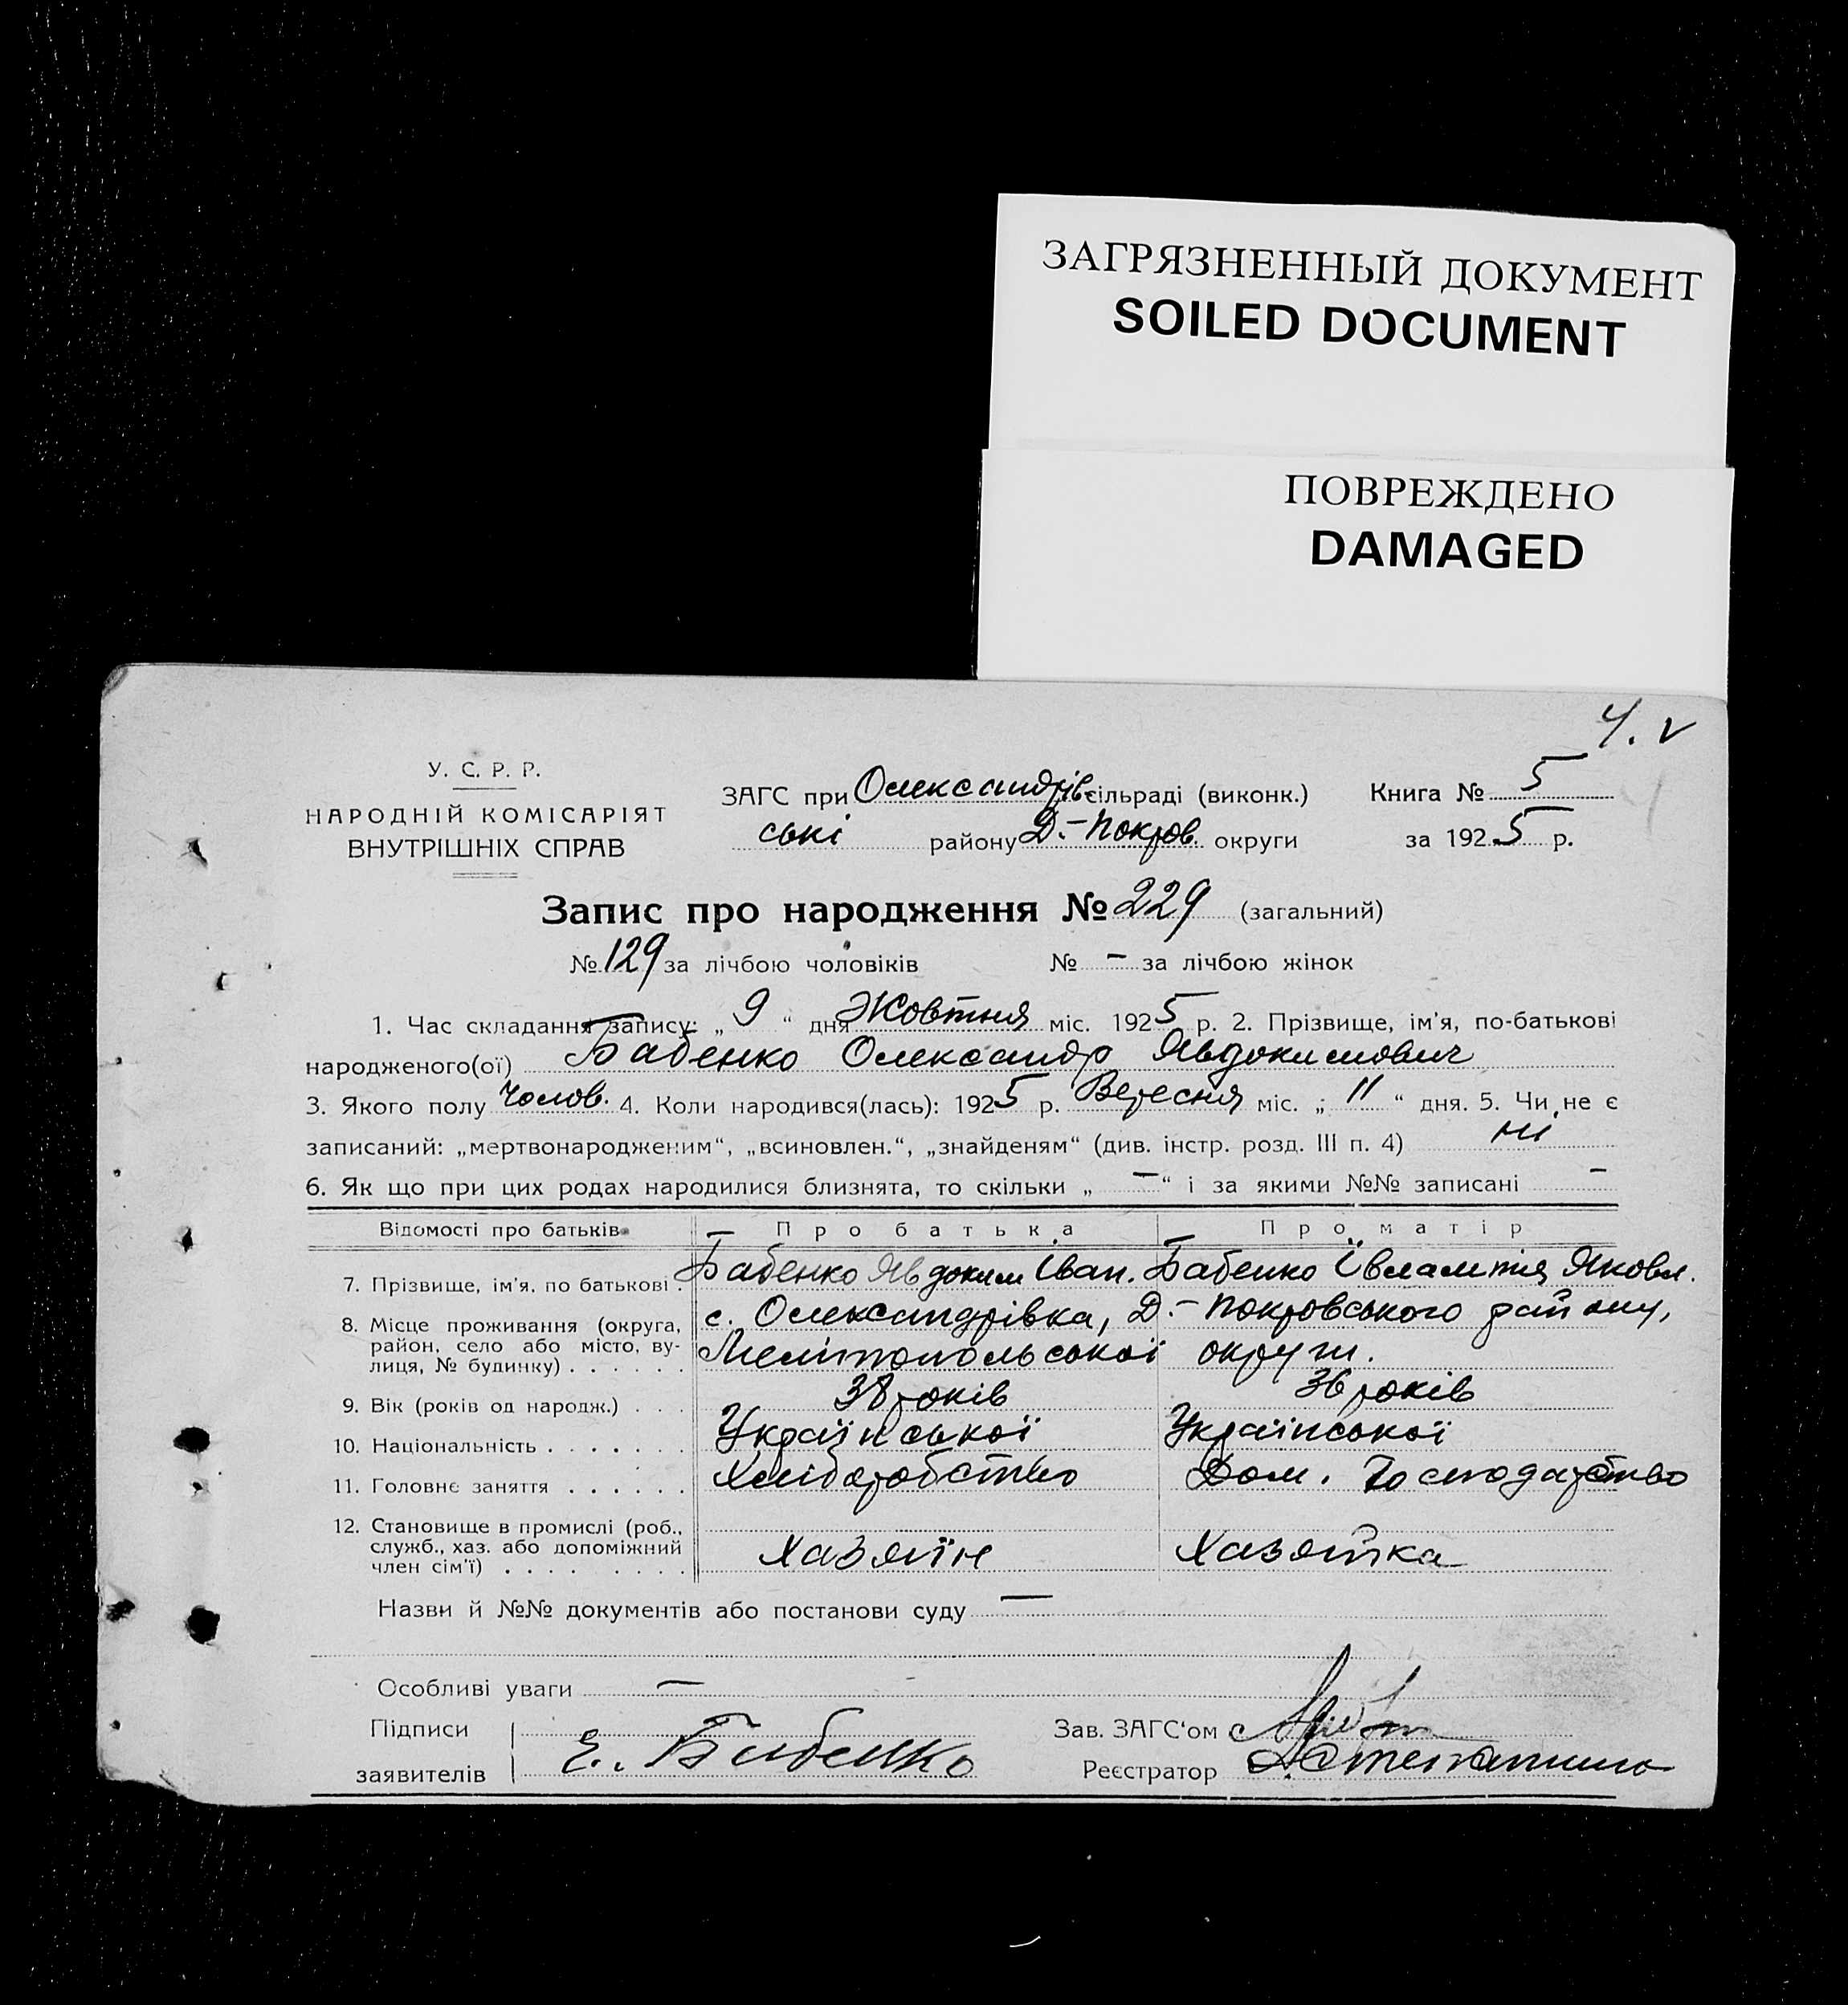 ЗАГРЯЗНЕННЫЙ ДОКУМЕНТ
SOILED DOCUMENT
ПОВРЕЖДЕНО
DAMAGED
Ч. v
У. С. Р. Р.
НАРОДНІЙ КОМІСАРІЯТ
ВНУТРІШНІХ СПРАВ
ЗАГС при Олександрів- сільраді (виконк.)
ські району Д.-Покров. округи
Книга № 5
за 1925 р.
Запис про народження № 229 (загальний)
№ 129 за лічбою чоловіків № – за лічбою жінок
1. Час складання запису: „ 9 “ дня Жовтня міс. 1925 р. 2. Прізвище, ім'я, по-батькові
народженого(ої) Бабенко Олександр Явдокимович
3. Якого полу Чолов. 4. Коли народився(лась): 1925 р. Вересня міс. „ 11 “ дня. 5. Чи не є
записаний: „мертвонародженим“, „всиновлен.“, „знайденям“ (див. інстр. розд. III п. 4) ні
6. Як що при цих родах народилися близнята, то скільки „ – “ і за якими №№ записані –
Відомості про батьків Про батька Про матір
7. Прізвище, ім'я, по батькові . Бабенко Явдоким Іван. Бабенко Ївлампія Яковл.
8. Місце проживання (округа, с. Олександрівка, Д.-Покровського району,
район, село або місто, ву-
лиця, № будинку) . . . . . . Мелітопольської округи.
9. Вік (років од народж.) . . . 38 років 36 років
10. Національність . . . . . . . Української Української
11. Головне заняття . . . . . . Хліборобство Дом. Господарство
12. Становище в промислі (роб.,
служб., хаз. або допоміжний Хазяїн Хазяйка
член сім'ї) . . . . . . . .
Назви й №№ документів або постанови суду —
Особливі уваги —
Підписи Зав. ЗАГС‘ом
заявителів Е. Бабенко Реєстратор